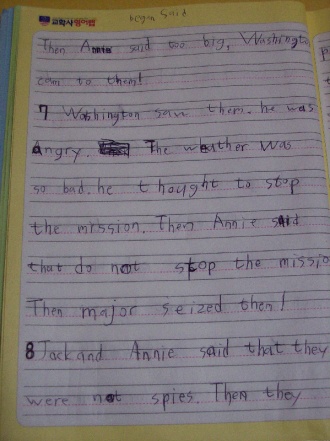 교학사
began said
Then Annie said too big, Washingto
com to them!
7 Washington saw them. he was
Angry. The weather was
so bad. he thought to stop
the mission. Then Annie said
that do not stop the missio
Then major seized then!
8 Jack and Annie said that they
were not spies. Then they